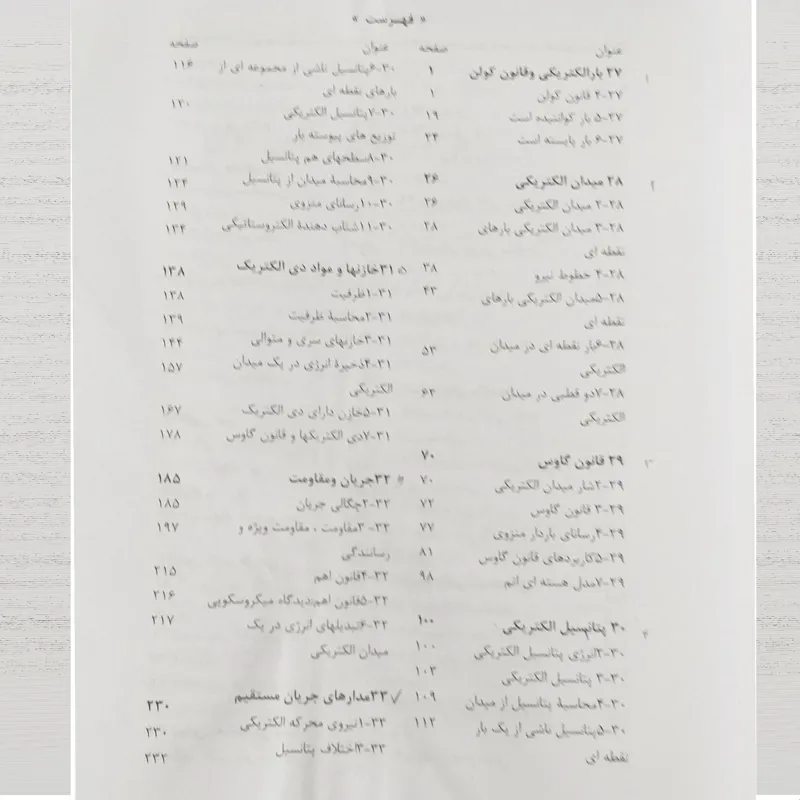 « فهرست »
عنوان صفحه
۲۷ بارالکتریکی وقانون کولن ۱
۲۷-۴ قانون کولن ۱
۲۷-۵ بار کوانتیده است ۱۹
۲۷-۶ بار پایسته است ۲۴
۲۸ میدان الکتریکی ۲۶
۲۸-۲ میدان الکتریکی ۲۶
۲۸-۳ میدان الکتریکی بارهای ۲۸
نقطه ای
۲۸-۴ خطوط نیرو ۳۸
۲۸-۵میدان الکتریکی بارهای ۴۳
نقطه ای
۲۸-۶بار نقطه ای در میدان ۵۳
الکتریکی
۲۸-۷دو قطبی در میدان ۶۴
الکتریکی
۲۹ قانون گاوس ۷۰
۲۹-۲شار میدان الکتریکی ۷۰
۲۹-۳ قانون گاوس ۷۲
۲۹-۴رسانای باردار منزوی ۷۷
۲۹-۵کاربردهای قانون گاوس ۸۱
۲۹-۷مدل هسته ای اتم ۹۸
۳۰ پتانسیل الکتریکی ۱۰۰
۳۰-۲انرژی پتانسیل الکتریکی ۱۰۰
۳۰-۳ پتانسیل الکتریکی ۱۰۳
۳۰-۴محاسبهٔ پتانسیل از میدان ۱۰۹
۳۰-۵پتانسیل ناشی از یک بار ۱۱۲
نقطه ای
عنوان صفحه
۳۰-۶پتانسیل ناشی از مجموعه ای از ۱۱۶
بارهای نقطه ای
۳۰-۷پتانسیل الکتریکی ۱۲۰
توزیع های پیوسته بار
۳۰-۸سطحهای هم پتانسیل ۱۲۱
۳۰-۹محاسبهٔ میدان از پتانسیل ۱۲۴
۳۰-۱۰رسانای منزوی ۱۲۹
۳۰-۱۱شتاب دهندهٔ الکتروستاتیکی ۱۳۴
۳۱خازنها و مواد دی الکتریک ۱۳۸
۳۱-۱ظرفیت ۱۳۸
۳۱-۲محاسبهٔ ظرفیت ۱۳۹
۳۱-۳خازنهای سری و متوالی ۱۴۴
۳۱-۴ذخیرهٔ انرژی در یک میدان ۱۵۷
الکتریکی
۳۱-۵خازن دارای دی الکتریک ۱۶۷
۳۱-۷دی الکتریکها و قانون گاوس ۱۷۸
۳۲جریان ومقاومت ۱۸۵
۳۲-۲چگالی جریان ۱۸۵
۳۲-۳مقاومت ، مقاومت ویژه و ۱۹۷
رسانندگی
۳۲-۴قانون اهم ۲۱۵
۳۲-۵قانون اهم:دیدگاه میکروسکوپی ۲۱۶
۳۲-۶تبدیلهای انرژی در یک ۲۱۷
میدان الکتریکی
۳۳مدارهای جریان مستقیم ۲۳۰
۳۳-۱نیروی محرکه الکتریکی ۲۳۰
۳۳-۳اختلاف پتانسیل ۲۳۲